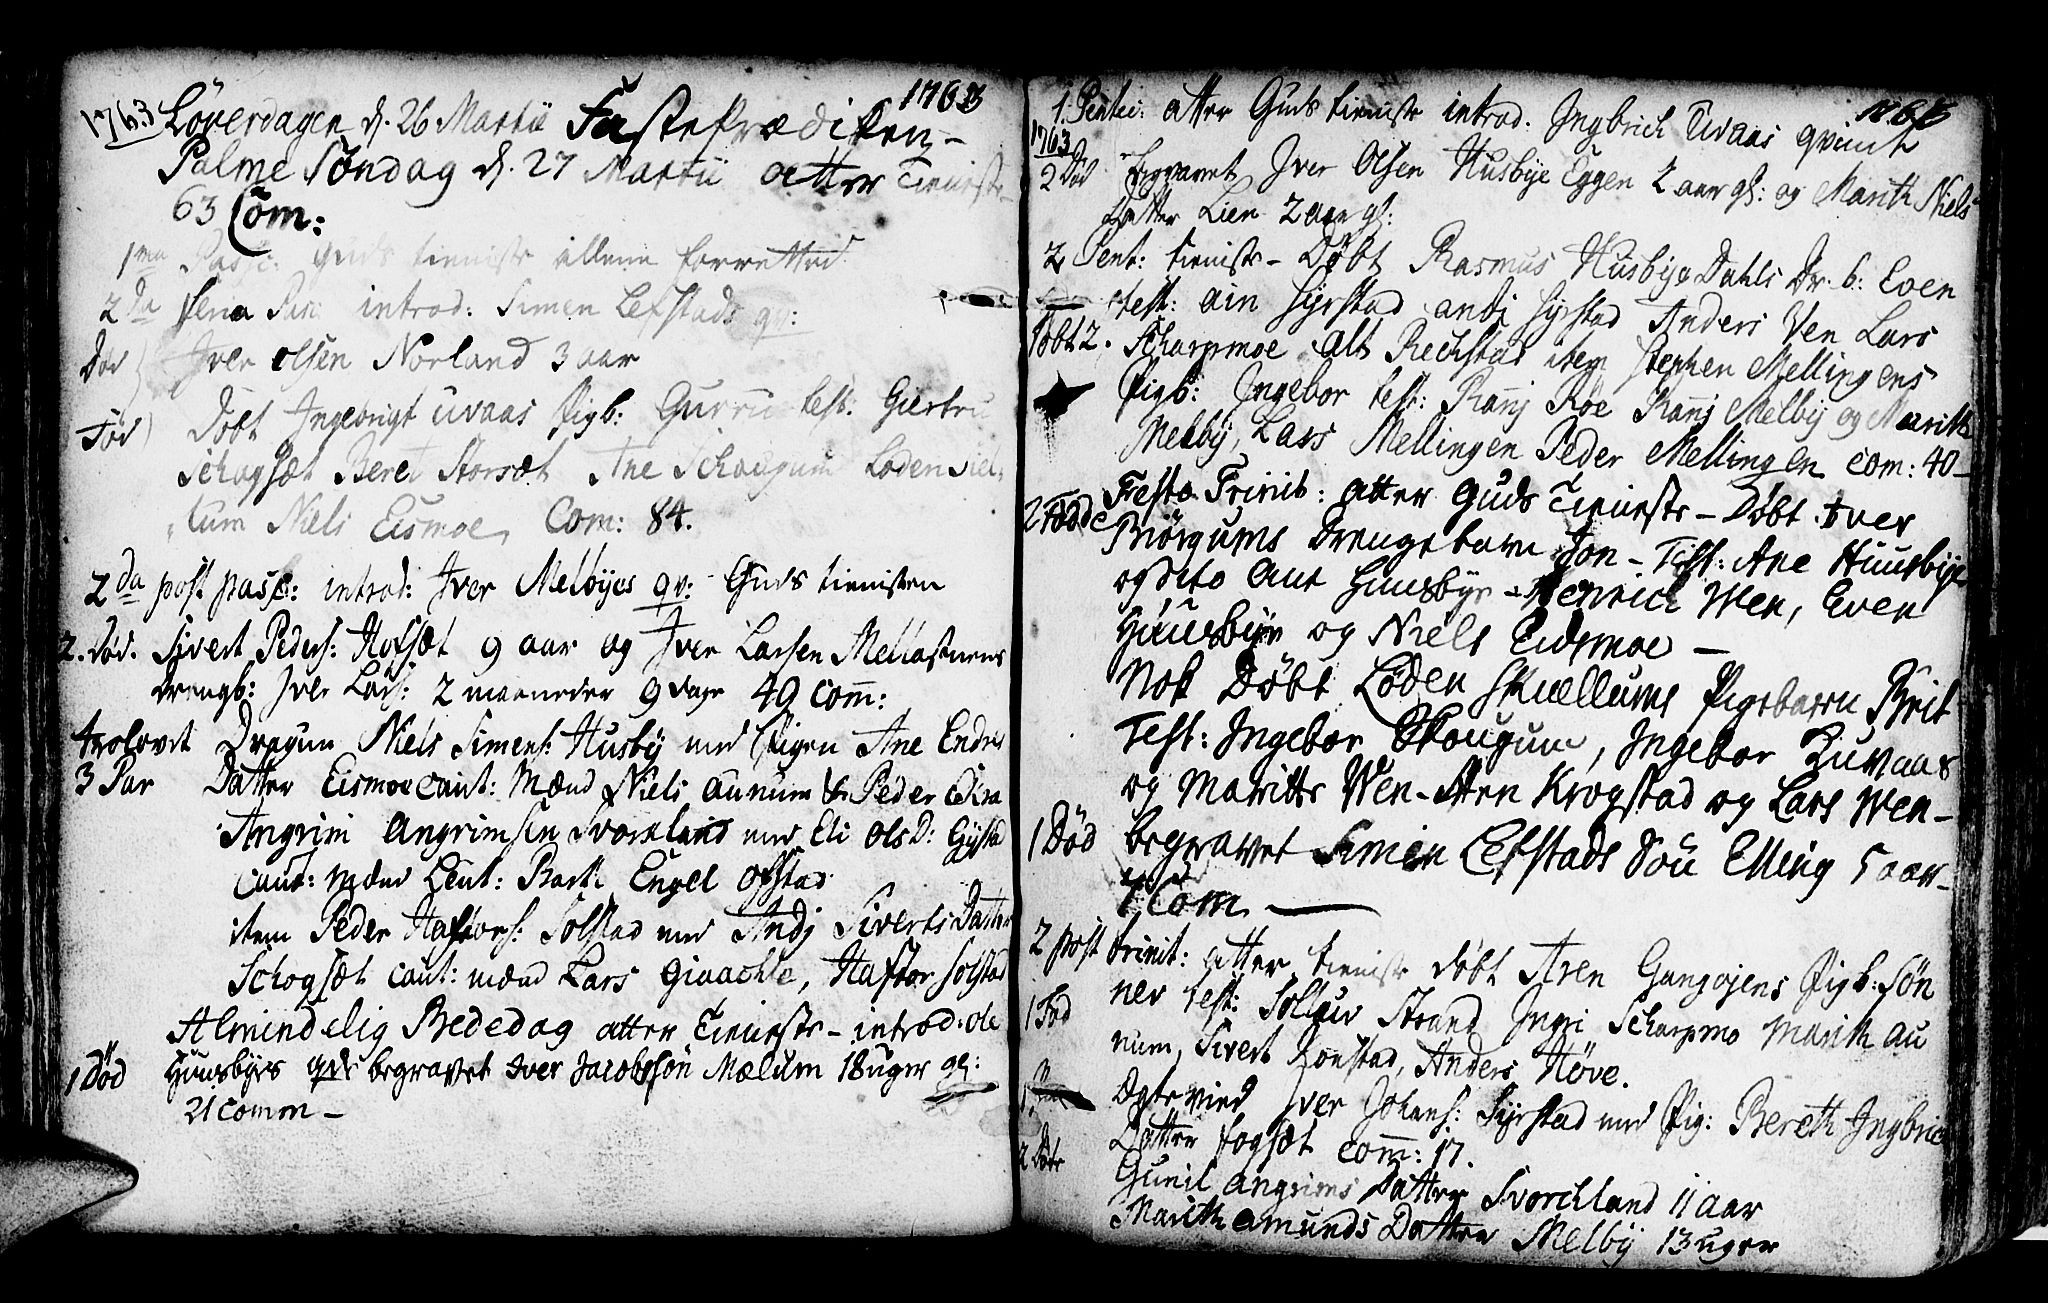 1763 1763
Löverdagen d. 26 Martii Fasteprædiken –
Palme Söndag d. 27 Martii atter Tieniste
63 Com:
1ma Pasc: Guds tieniste allene forretted
2da feria Pasc introd: Simen Lefstads qv:
Död Iver Olsen Norland 3 aar
Föd Döbt Ingebrigt Uvaas Pigb: Gurru test: Giertru
Schogsæt Beret Storsæt Ane Schougum Loden Siel
lum Niels Eismoe, Com: 84.
2da post pasc: introd: Iver Melbyes qv: Guds tienisten
2. Död. Sivert Peders: Hofsæt 9 aar og Iver Larsen Mellastuens
Drengb: Iver Lars: 2 maaneder 9 dage 49 com:
Trolovet Dragun Niels Simens: Husby med Pigen Ane Endres
3 Par Datter Eismoe caut: Mænd Niels Aunum & Peder
Angrim Angrimsen Svorkland med Eli Ols D: Gyfsta
Caut: Mænd Leut: Barth Engel Ofstad
item Peder Haftors: Solstad med Andj Siverts Datter
Schogsæt caut: mænd Lars Giaachle, Haftor Solstad
Almindelig Bededag atter Tieneste – introd: Ole
1 Död Huusbyes qde begravet Iver Jacobssön Mælum 18 uger gl:
21 Comm –
1. Pentec: atter Guds tieniste introd. Ingbrich Uvaas qvinde 1763
1763
2 Död Begravet Iver Olsen Husbye Eggen 2 aar gl: og Marith Niels
Datter Lien 2 aar gl:
2 Pent: tieniste – Döbt Rasmus Husbye Dahls Dr. b: Even
test: Syrstad Syrstad Anders Ven Lars
Döbt 2. Scharpmoe Alt Rechstad item Stephen Mellingens
Pigb: Ingebor test: Ranj Roe Ranj Melbÿ og Marith
Melbÿ, Lars Mellingen Peder Mellingen com: 40 –
Festo Trinit: atter Guds Tieneste – Döbt Iver
2 Födde Biörgums Drengebarn Jon – Test: Ane Huusbye
og dito Huusbye – Henrich Wen, Even
Huusbye og Niels Eidsmoe –
Nok Döbt Loden Skiællums Pigebarn Brit
Test: Ingebor Skougum, Ingebor Zuvaas
og Maritte Wen – Aren Krogstad og Lars Wen –
1 Död begravet Simen Lefstads Sön Elling 5 aar –
7 Com –
2 post trinit: atter tieniste döbt Aren Gangojens Pigb: Sön
1 Föd nev test: Solluv Strand Ingri Scharpmo Marith Au
num, Sivert Lonstad, Anders Höve.
Iver Johans: Syrstad med Pig: Bereth Ingbric
Datter Fogsæt Com: 17.
2 Döde Gunil Angrims Datter Svorchland 11 aar
Marith Amunds Datter Melbÿ 13 uger